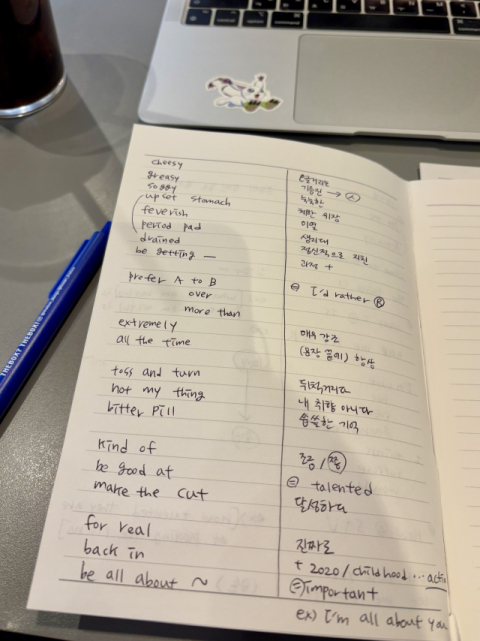 cheesy 오글거리는
greasy 기름진 →
soggy 눅눅한
upset stomach 체한 위장
feverish 미열
period pad 생리대
drained 정신적으로 지친
be getting — 과정 +
prefer A to B = I'd rather Ⓑ
over
more than
extremely 매우 강조
all the time (문장 끝에) 항상
toss and turn 뒤척거리다
not my thing 내 취향 아니다
bitter pill 씁쓸한 기억
kind of 조금 / 좀
be good at = talented
make the cut 달성하다
for real 진짜로
back in + 2020 / childhood ...
be all about ~ = important
ex) I'm all about you
THEBOX THEBOX